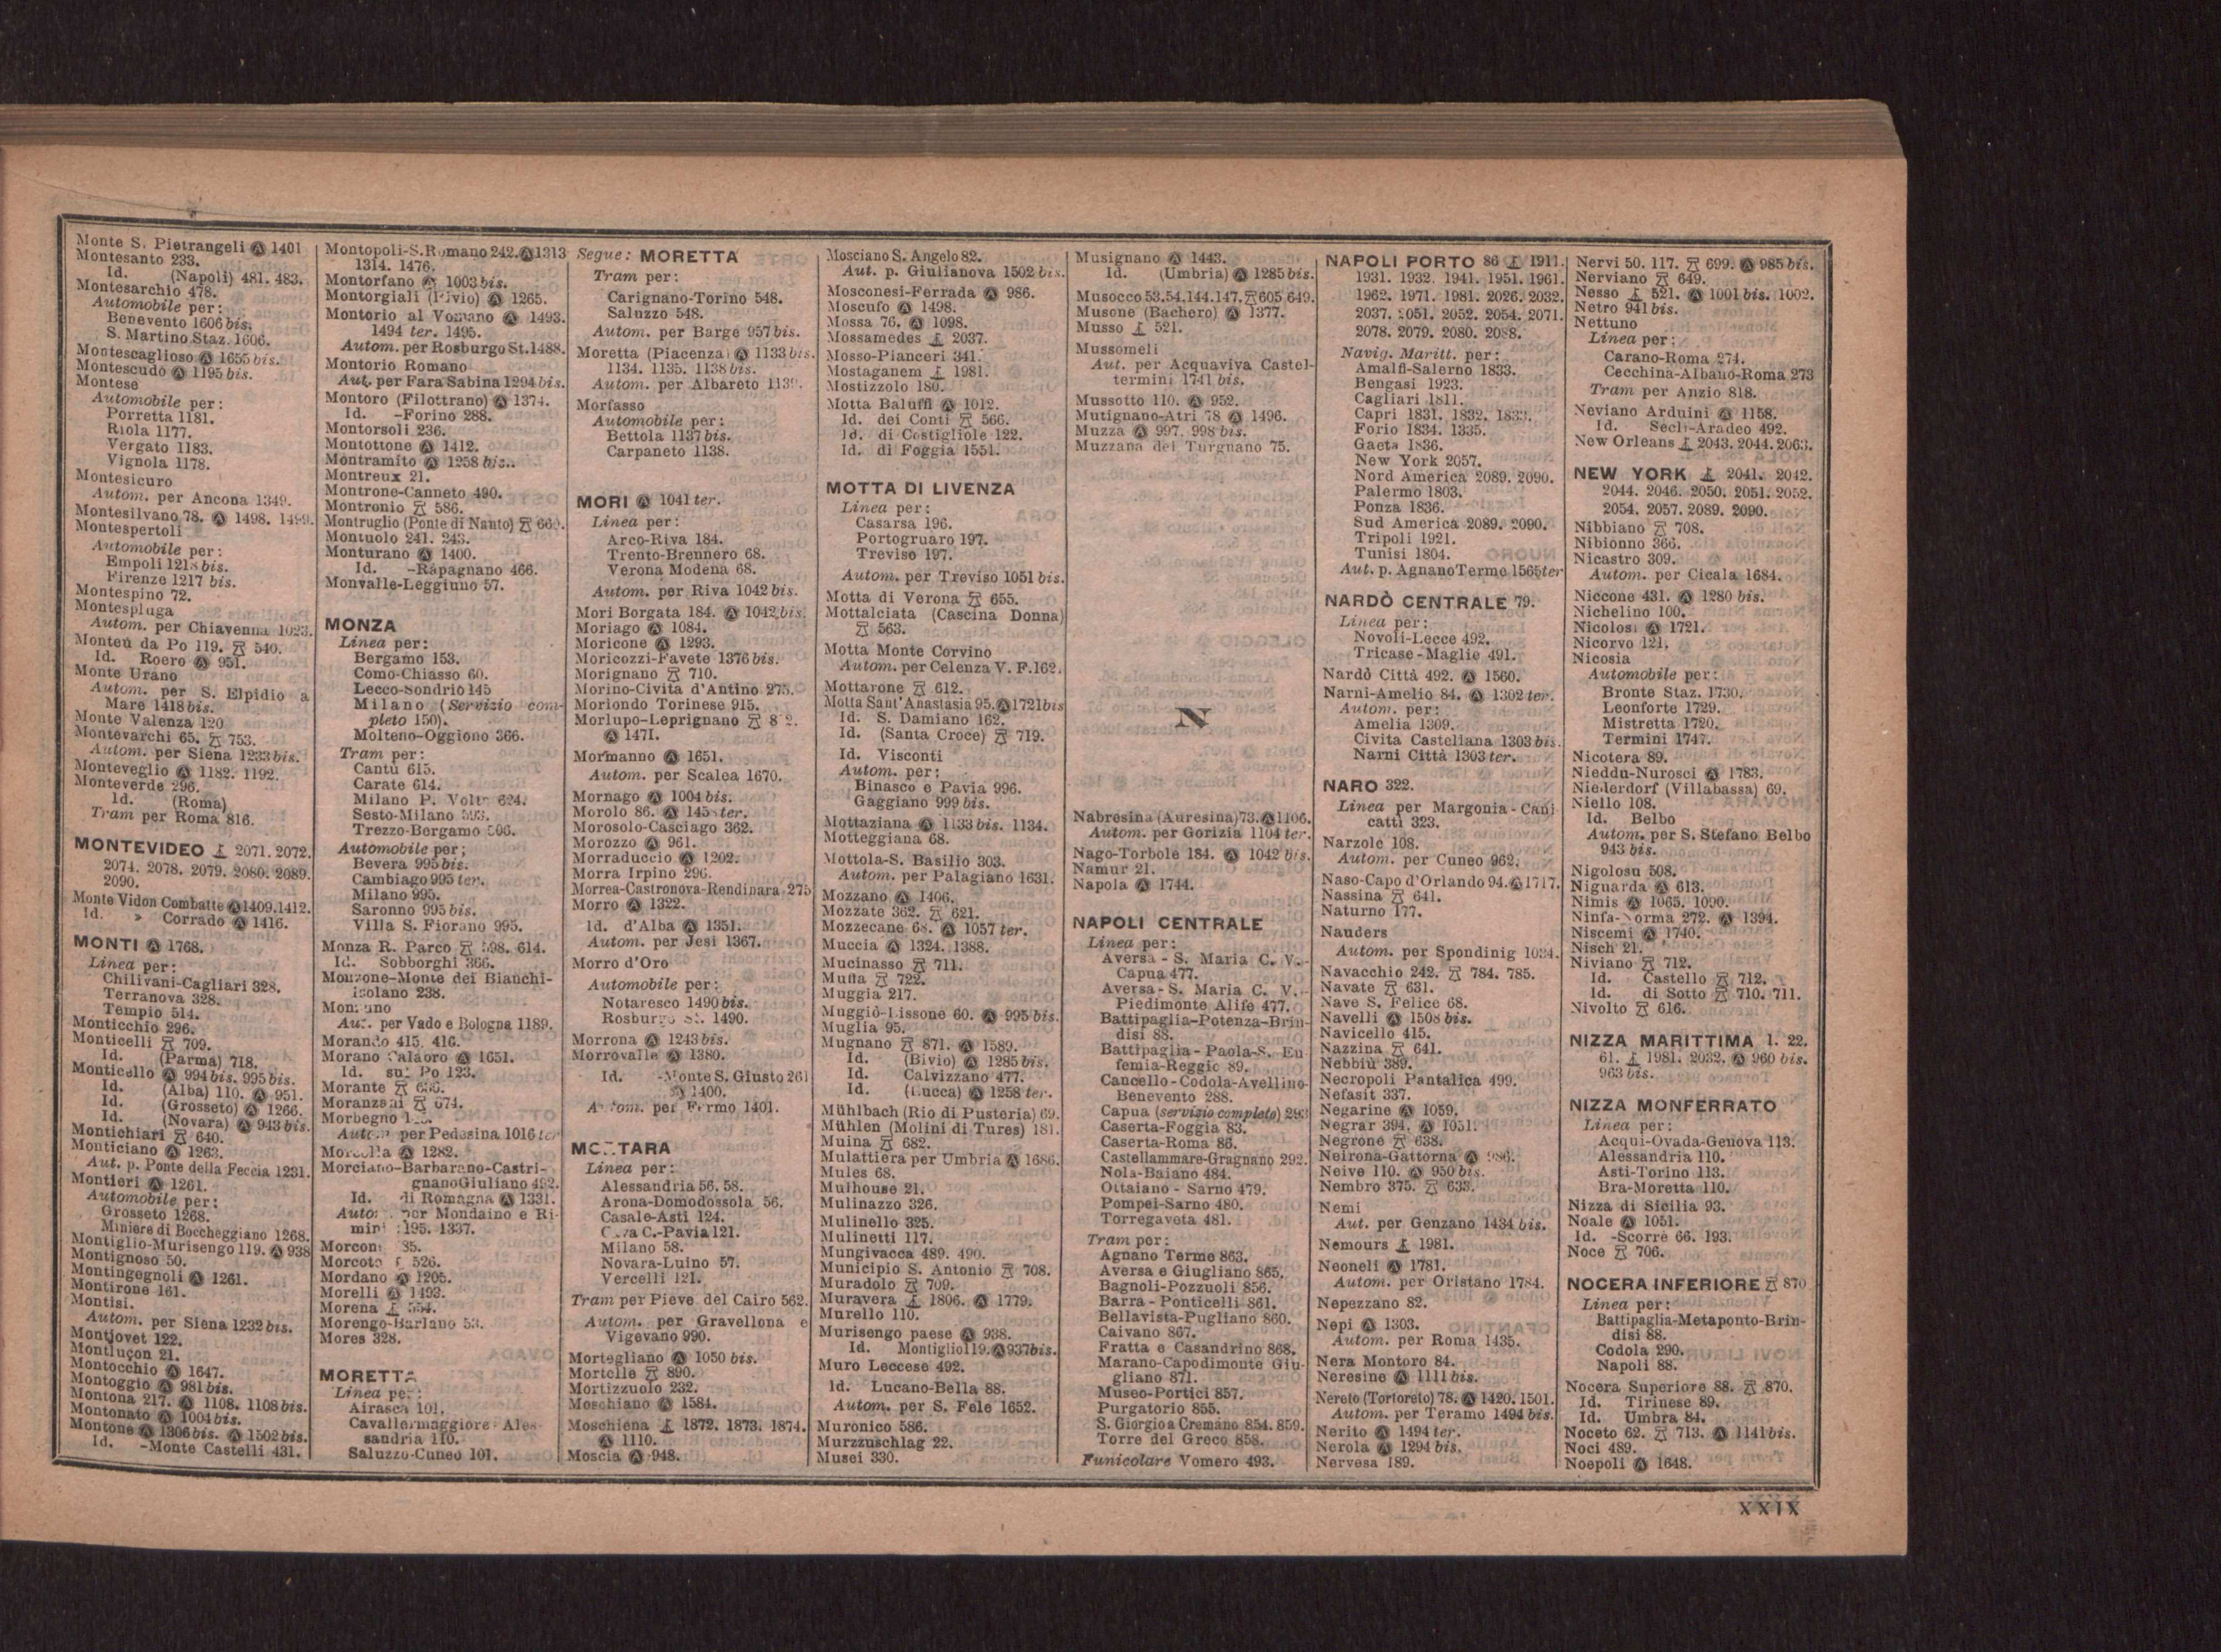 Monte S. Pietrangeli Ⓐ 1401
Montesanto 233.
Id. (Napoli) 481. 483.
Montesarchio 478.
Automobile per:
Benevento 1606 bis.
S. Martino Staz. 1606.
Montescaglioso Ⓐ 1655 bis.
Montescudo Ⓐ 1195 bis.
Montese
Automobile per:
Porretta 1181.
Riola 1177.
Vergato 1183.
Vignola 1178.
Montesicuro
Autom. per Ancona 1349.
Montesilvano 78. Ⓐ 1498. 1499.
Montespertoli
Automobile per:
Empoli 1218 bis.
Firenze 1217 bis.
Montespino 72.
Montespluga
Autom. per Chiavenna 1023.
Monteu da Po 119. 540.
Id. Roero Ⓐ 951.
Monte Urano
Autom. per S. Elpidio a
Mare 1418 bis.
Monte Valenza 120
Montevarchi 65. 753.
Autom. per Siena 1233 bis.
Monteveglio Ⓐ 1182. 1192.
Monteverde 296.
Id. (Roma)
Tram per Roma 816.
MONTEVIDEO 2071. 2072.
2074. 2078. 2079. 2080. 2089.
2090.
Monte Vidon Combatte Ⓐ 1409. 1412.
Id. » Corrado Ⓐ 1416.
MONTI Ⓐ 1768.
Linea per:
Chilivani-Cagliari 328.
Terranova 328.
Tempio 514.
Monticchio 296.
Monticelli 709.
Id. (Parma) 718.
Monticello Ⓐ 994 bis. 995 bis.
Id. (Alba) 110. Ⓐ 951.
Id. (Grosseto) Ⓐ 1266.
Id. (Novara) Ⓐ 943 bis.
Montichiari 640.
Monticiano Ⓐ 1263.
Aut. p. Ponte della Feccia 1231.
Montieri Ⓐ 1261.
Automobile per:
Grosseto 1268.
Miniere di Boccheggiano 1268.
Montiglio-Murisengo 119. Ⓐ 938
Montignoso 50.
Montingegnoli Ⓐ 1261.
Montirone 161.
Montisi.
Autom. per Siena 1232 bis.
Montjovet 122.
Montluçon 21.
Montocchio Ⓐ 1647.
Montoggio Ⓐ 981 bis.
Montona 217. Ⓐ 1108. 1108 bis.
Montonato Ⓐ 1004 bis.
Montone Ⓐ 1306 bis. Ⓐ 1502 bis.
Id. -Monte Castelli 431.
Montopoli-S. Romano 242. Ⓐ 1313
1314. 1476.
Montorfano Ⓐ 1003 bis.
Montorgiali (Bivio) Ⓐ 1265.
Montorio al Vomano Ⓐ 1493.
1494 ter. 1495.
Autom. per Rosburgo St. 1488.
Montorio Romano
Aut. per Fara Sabina 1294 bis.
Montoro (Filottrano) Ⓐ 1374.
Id. -Forino 288.
Montorsoli 236.
Montottone Ⓐ 1412.
Montramito Ⓐ 1258 bis.
Montreux 21.
Montrone-Canneto 490.
Montronio 586.
Montruglio (Ponte di Nanto)
Montuolo 241. 243.
Monturano Ⓐ 1400.
Id. -Rapagnano 466.
Monvalle-Leggiuno 57.
MONZA
Linea per:
Bergamo 153.
Como-Chiasso 60.
Lecco-Sondrio 145
Milano (Servizio com-
pleto 150).
Molteno-Oggiono 366.
Tram per:
Cantù 615.
Carate 614.
Milano P. Volta 624.
Sesto-Milano 593.
Trezzo-Bergamo 596.
Automobile per;
Bevera 995 bis.
Cambiago 995 ter.
Milano 995.
Saronno 995 bis.
Villa S. Fiorano 995.
Monza R. Parco 598. 614.
Id. Sobborghi 366.
Monzone-Monte dei Bianchi-
Isolano 238.
Monzuno
Aut. per Vado e Bologna 1189.
Morando 415. 416.
Morano Calabro Ⓐ 1651.
Id. sul Po 123.
Morante
Moranzani 674.
Morbegno
Autom. per Pedesina 1016 ter
Ⓐ 1282.
Morciano-Barbarano-Castri-
gnano Giuliano 492.
Id. di Romagna Ⓐ 1331.
Autom. per Mondaino e Ri-
mini 1195. 1337.
Morcone 85.
Morcote 526.
Mordano Ⓐ 1205.
Morelli Ⓐ 1493.
Morena 554.
Morengo-Bariano 53.
Mores 328.
MORETTA
Linea per:
Airasca 101.
Cavallermaggiore-Ales-
sandria 110.
Saluzzo-Cuneo 101.
Segue: MORETTA
Tram per:
Carignano-Torino 548.
Saluzzo 548.
Autom. per Barge 957 bis.
Moretta (Piacenza) Ⓐ 1133 bis.
1134. 1135. 1138 bis.
Autom. per Albareto
Morfasso
Automobile per:
Bettola 1137 bis.
Carpaneto 1138.
MORI Ⓐ 1041 ter.
Linea per:
Arco-Riva 184.
Trento-Brennero 68.
Verona Modena 68.
Autom. per Riva 1042 bis.
Mori Borgata 184. Ⓐ 1042 bis.
Moriago Ⓐ 1084.
Moricone Ⓐ 1293.
Moricozzi-Favete 1376 bis.
Morignano 710.
Morino-Civita d'Antino 275.
Moriondo Torinese 915.
Morlupo-Leprignano
Ⓐ 1471.
Mormanno Ⓐ 1651.
Autom. per Scalea 1670.
Mornago Ⓐ 1004 bis.
Morolo 86. Ⓐ 1458 ter.
Morosolo-Casciago 362.
Morozzo Ⓐ 961.
Morraduccio Ⓐ 1202.
Morra Irpino 296.
Morrea-Castronova-Rendinara 275
Morro Ⓐ 1322.
Id. d'Alba Ⓐ 1351.
Autom. per Jesi 1367.
Morro d'Oro
Automobile per:
Notaresco 1490 bis.
Rosburgo St. 1490.
Morrona Ⓐ 1243 bis.
Morrovalle Ⓐ 1380.
Id. -Monte S. Giusto 261
Ⓐ 1400.
Autom. per Fermo 1401.
MORTARA
Linea per:
Alessandria 56. 58.
Arona-Domodossola 56.
Casale-Asti 124.
Cava C.-Pavia 121.
Milano 58.
Novara-Luino 57.
Vercelli 121.
Tram per Pieve del Cairo 562.
Autom. per Gravellona e
Vigevano 990.
Mortegliano Ⓐ 1050 bis.
Mortelle 890.
Mortizzuolo 232.
Moschiano Ⓐ 1584.
Moschiena 1872. 1873. 1874.
Ⓐ 1110.
Moscia Ⓐ 948.
Mosciano S. Angelo 82.
Aut. p. Giulianova 1502 bis.
Mosconesi-Ferrada Ⓐ 986.
Moscufo Ⓐ 1498.
Mossa 76. Ⓐ 1098.
Mossamedes 2037.
Mosso-Pianceri 341.
Mostaganem 1981.
Mostizzolo 180.
Motta Baluffi Ⓐ 1012.
Id. dei Conti 566.
Id. di Costigliole 122.
Id. di Foggia 1551.
MOTTA DI LIVENZA
Linea per:
Casarsa 196.
Portogruaro 197.
Treviso 197.
Autom. per Treviso 1051 bis.
Motta di Verona 655.
Mottalciata (Cascina Donna)
563.
Motta Monte Corvino
Autom. per Celenza V. F. 162.
Mottarone 612.
Motta Sant'Anastasia 95. Ⓐ 1721 bis
Id. S. Damiano 162.
Id. (Santa Croce) 719.
Id. Visconti
Autom. per:
Binasco e Pavia 996.
Gaggiano 999 bis.
Mottaziana Ⓐ 1133 bis. 1134.
Motteggiana 68.
Mottola-S. Basilio 303.
Autom. per Palagiano 1631.
Mozzano Ⓐ 1406.
Mozzate 362. 621.
Mozzecane 68. Ⓐ 1057 ter.
Muccia Ⓐ 1324. 1388.
Mucinasso 711.
Muffa 722.
Muggia 217.
Muggiò-Lissone 60. Ⓐ 995 bis.
Muglia 95.
Mugnano 871. Ⓐ 1589.
Id. (Bivio) Ⓐ 1285 bis.
Id. Calvizzano 477.
Id. (Lucca) Ⓐ 1258 ter.
Mühlbach (Rio di Pusteria) 69.
Mühlen (Molini di Tures) 181.
Muina 682.
Mulattiera per Umbria Ⓐ 1686.
Mules 68.
Mulhouse 21.
Mulinazzo 326.
Mulinello 325.
Mulinetti 117.
Mungivacca 489. 490.
Municipio S. Antonio 708.
Muradolo 709.
Muravera 1806. Ⓐ 1779.
Murello 110.
Murisengo paese Ⓐ 938.
Id. Montiglio 119. Ⓐ 937 bis.
Muro Leccese 492.
Id. Lucano-Bella 88.
Autom. per S. Fele 1652.
Muronico 586.
Murzzuschlag 22.
Musei 330.
Musignano Ⓐ 1443.
Id. (Umbria) Ⓐ 1285 bis.
Musocco 53. 54. 144. 147. 605. 649.
Musone (Bachero) Ⓐ 1377.
Musso 521.
Mussomeli
Aut. per Acquaviva Castel-
termini 1741 bis.
Mussotto 110. Ⓐ 952.
Mutignano-Atri 78 Ⓐ 1496.
Muzza Ⓐ 997. 998 bis.
Muzzana del Turgnano 75.
N
Nabresina (Auresina) 73. Ⓐ 1106.
Autom. per Gorizia 1104 ter.
Nago-Torbole 184. Ⓐ 1042 bis.
Namur 21.
Napola Ⓐ 1744.
NAPOLI CENTRALE
Linea per:
Aversa - S. Maria C. V.-
Capua 477.
Aversa - S. Maria C. V.-
Piedimonte Alife 477.
Battipaglia-Potenza-Brin-
disi 88.
Battipaglia - Paola-S. Eu
femia-Reggio 89.
Cancello-Codola-Avellino-
Benevento 288.
Capua (servizio completo) 293
Caserta-Foggia 83.
Caserta-Roma 86.
Castellammare-Gragnano 292.
Nola-Baiano 484.
Ottaiano - Sarno 479.
Pompei-Sarno 480.
Torregaveta 481.
Tram per:
Agnano Terme 863.
Aversa e Giugliano 865.
Bagnoli-Pozzuoli 856.
Barra - Ponticelli 861.
Bellavista-Pugliano 860.
Caivano 867.
Fratta e Casandrino 868.
Marano-Capodimonte Giu-
gliano 871.
Museo-Portici 857.
Purgatorio 855.
S. Giorgio a Cremano 854. 859.
Torre del Greco 858.
Funicolare Vomero 493.
NAPOLI PORTO 86 1911.
1931. 1932. 1941. 1951. 1961.
1962. 1971. 1981. 2026. 2032.
2037. 2051. 2052. 2054. 2071.
2078. 2079. 2080. 2088.
Navig. Maritt. per:
Amalfi-Salerno 1833.
Bengasi 1923.
Cagliari 1811.
Capri 1831. 1832. 1833.
Forio 1834. 1335.
Gaeta 1836.
New York 2057.
Nord America 2089. 2090.
Palermo 1803.
Ponza 1836.
Sud America 2089. 2090.
Tripoli 1921.
Tunisi 1804.
Aut. p. Agnano Terme 1565 ter
NARDÒ CENTRALE 79.
Linea per:
Novoli-Lecce 492.
Tricase - Maglie 491.
Nardò Città 492. Ⓐ 1560.
Narni-Amelio 84. Ⓐ 1302 ter.
Autom. per:
Amelia 1309.
Civita Castellana 1303 bis.
Narni Città 1303 ter.
NARO 322.
Linea per Margonia - Cani
catti 323.
Narzole 108.
Autom. per Cuneo 962.
Naso-Capo d'Orlando 94. Ⓐ 1717.
Nassina 641.
Naturno 177.
Nauders
Autom. per Spondinig 1034.
Navacchio 242. 784. 785.
Navate 631.
Nave S. Felice 68.
Navelli Ⓐ 1508 bis.
Navicello 415.
Nazzina 641.
Nebbiù 389.
Necropoli Pantalica 499.
Nefasit 337.
Negarine Ⓐ 1059.
Negrar 394. Ⓐ 1051.
Negrone 638.
Neirona-Gattorna Ⓐ 986.
Neive 110. Ⓐ 950 bis.
Nembro 375. 633.
Nemi
Aut. per Genzano 1434 bis.
Nemours 1981.
Neoneli Ⓐ 1781.
Autom. per Oristano 1784.
Nepezzano 82.
Nepi Ⓐ 1303.
Autom. per Roma 1435.
Nera Montoro 84.
Neresine Ⓐ 1111 bis.
Nereto (Tortoreto) 78. Ⓐ 1420. 1501.
Autom. per Teramo 1494 bis.
Nerito Ⓐ 1494 ter.
Nerola Ⓐ 1294 bis.
Nervesa 189.
Nervi 50. 117. 699. Ⓐ 985 bis.
Nerviano 649.
Nesso 521. Ⓐ 1001 bis. 1002.
Netro 941 bis.
Nettuno
Linea per:
Carano-Roma 274.
Cecchina-Albano-Roma 273
Tram per Anzio 818.
Neviano Arduini Ⓐ 1158.
Id. Secli-Aradeo 492.
New Orleans 2043. 2044. 2063.
NEW YORK 2041. 2042.
2044. 2046. 2050. 2051. 2052.
2054. 2057. 2089. 2090.
Nibbiano 708.
Nibionno 366.
Nicastro 309.
Autom. per Cicala 1684.
Niccone 431. Ⓐ 1280 bis.
Nichelino 100.
Nicolosi Ⓐ 1721.
Nicorvo 121.
Nicosia
Automobile per:
Bronte Staz. 1730.
Leonforte 1729.
Mistretta 1720.
Termini 1747.
Nicotera 89.
Nieddu-Nurosci Ⓐ 1783.
Niederdorf (Villabassa) 69.
Niello 108.
Id. Belbo
Autom. per S. Stefano Belbo
943 bis.
Nigolosu 508.
Niguarda Ⓐ 613.
Nimis Ⓐ 1065. 1090.
Ninfa-Norma 272. Ⓐ 1394.
Niscemi Ⓐ 1740.
Nisch 21.
Niviano 712.
Id. Castello 712.
Id. di Sotto 710. 711.
Nivolto 616.
NIZZA MARITTIMA 1. 22.
61. 1981. 2032. Ⓐ 960 bis.
963 bis.
NIZZA MONFERRATO
Linea per:
Acqui-Ovada-Genova 113.
Alessandria 110.
Asti-Torino 113.
Bra-Moretta 110.
Nizza di Sicilia 93.
Noale Ⓐ 1051.
Id. -Scorrè 66. 193.
Noce 706.
NOCERA INFERIORE 870
Linea per:
Battipaglia-Metaponto-Brin-
disi 88.
Codola 290.
Napoli 88.
Nocera Superiore 88. 870.
Id. Tirinese 89.
Id. Umbra 84.
Noceto 62. 713. Ⓐ 1141 bis.
Noci 489.
Noepoli Ⓐ 1648.
XXIX